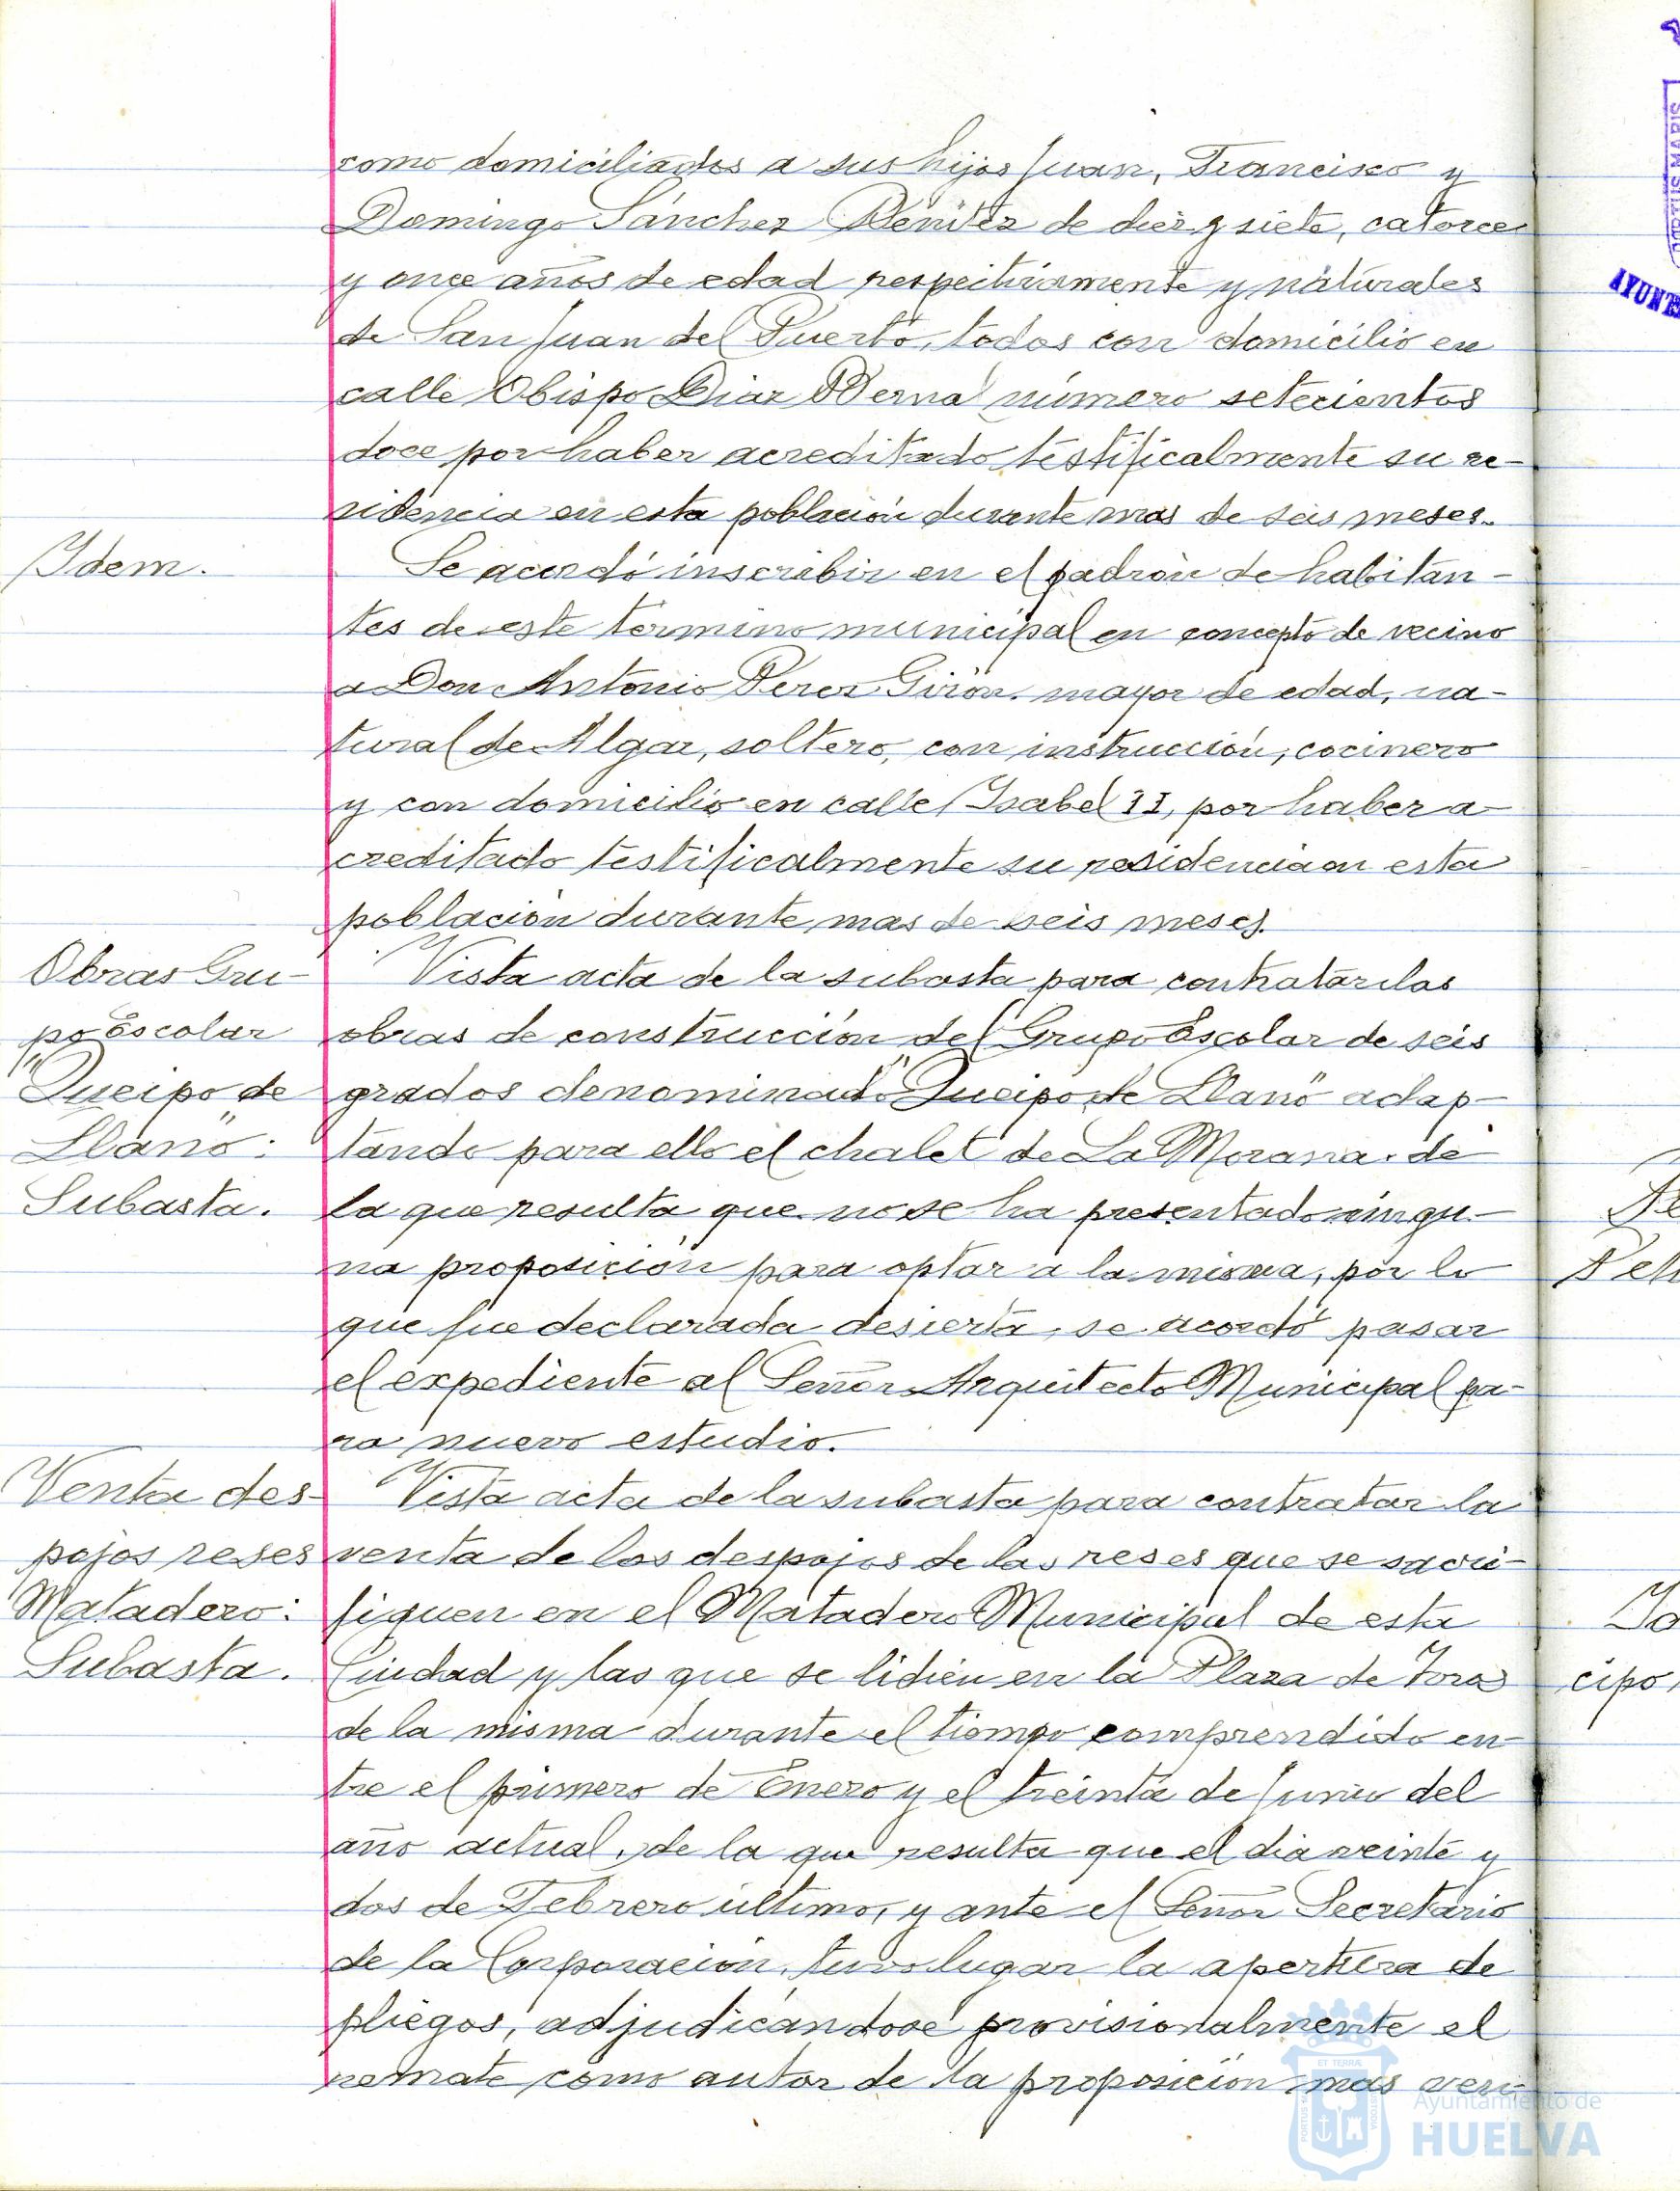 como domiciliados a sus hijos Juan, Francisco y
Domingo Sánchez Benitez de diez y siete, catorce
y once años de edad respectivamente y naturales
de San Juan del Puerto, todos con domicilio en
calle Obispo Diaz Bernal número setecientos
doce por haber acreditado testificalmente su re-
sidencia en esta población durante mas de seis meses.
Idem.
Se acordó inscribir en el padrón de habitan-
tes de este término municipal en concepto de vecino
a Don Antonio Perez Girón. mayor de edad, na-
tural de Algar, soltero, con instrucción, cocinero
y con domicilio en calle Isabel II, por haber a-
creditado testificalmente su residencia en esta
población durante mas de seis meses.
Obras Gru-
po Escolar
"Queipo de
Llano":
Subasta.
Vista acta de la subasta para contratar las
obras de construcción del Grupo Escolar de seis
grados denominado "Queipo de Llano" adap-
tando para ello el chalet de La Morana. de
la que resulta que no se ha presentado ningu-
na proposición para optar a la misma, por lo
que fue declarada desierta, se acordó pasar
el expediente al Señor Arquitecto Municipal pa-
ra nuevo estudio.
Venta des-
pojos reses
Matadero:
Subasta.
Vista acta de la subasta para contratar la
venta de los despojos de las reses que se sacri-
fiquen en el Matadero Municipal de esta
Ciudad y las que se lidien en la Plaza de Toros
de la misma durante el tiempo comprendido en-
tre el primero de Enero y el treinta de Junio del
año actual, de la que resulta que el dia veinte y
dos de Febrero último, y ante el Señor Secretario
de la Corporación, tuvo lugar la apertura de
pliegos, adjudicándose provisionalmente el
remate como autor de la proposición mas ven-
cipo,
PORTUS MARIS
AYUNT
Ayuntamiento de
HUELVA